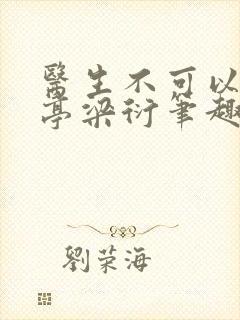 醫生不可以
亭梁衍筆趣
劉荣海